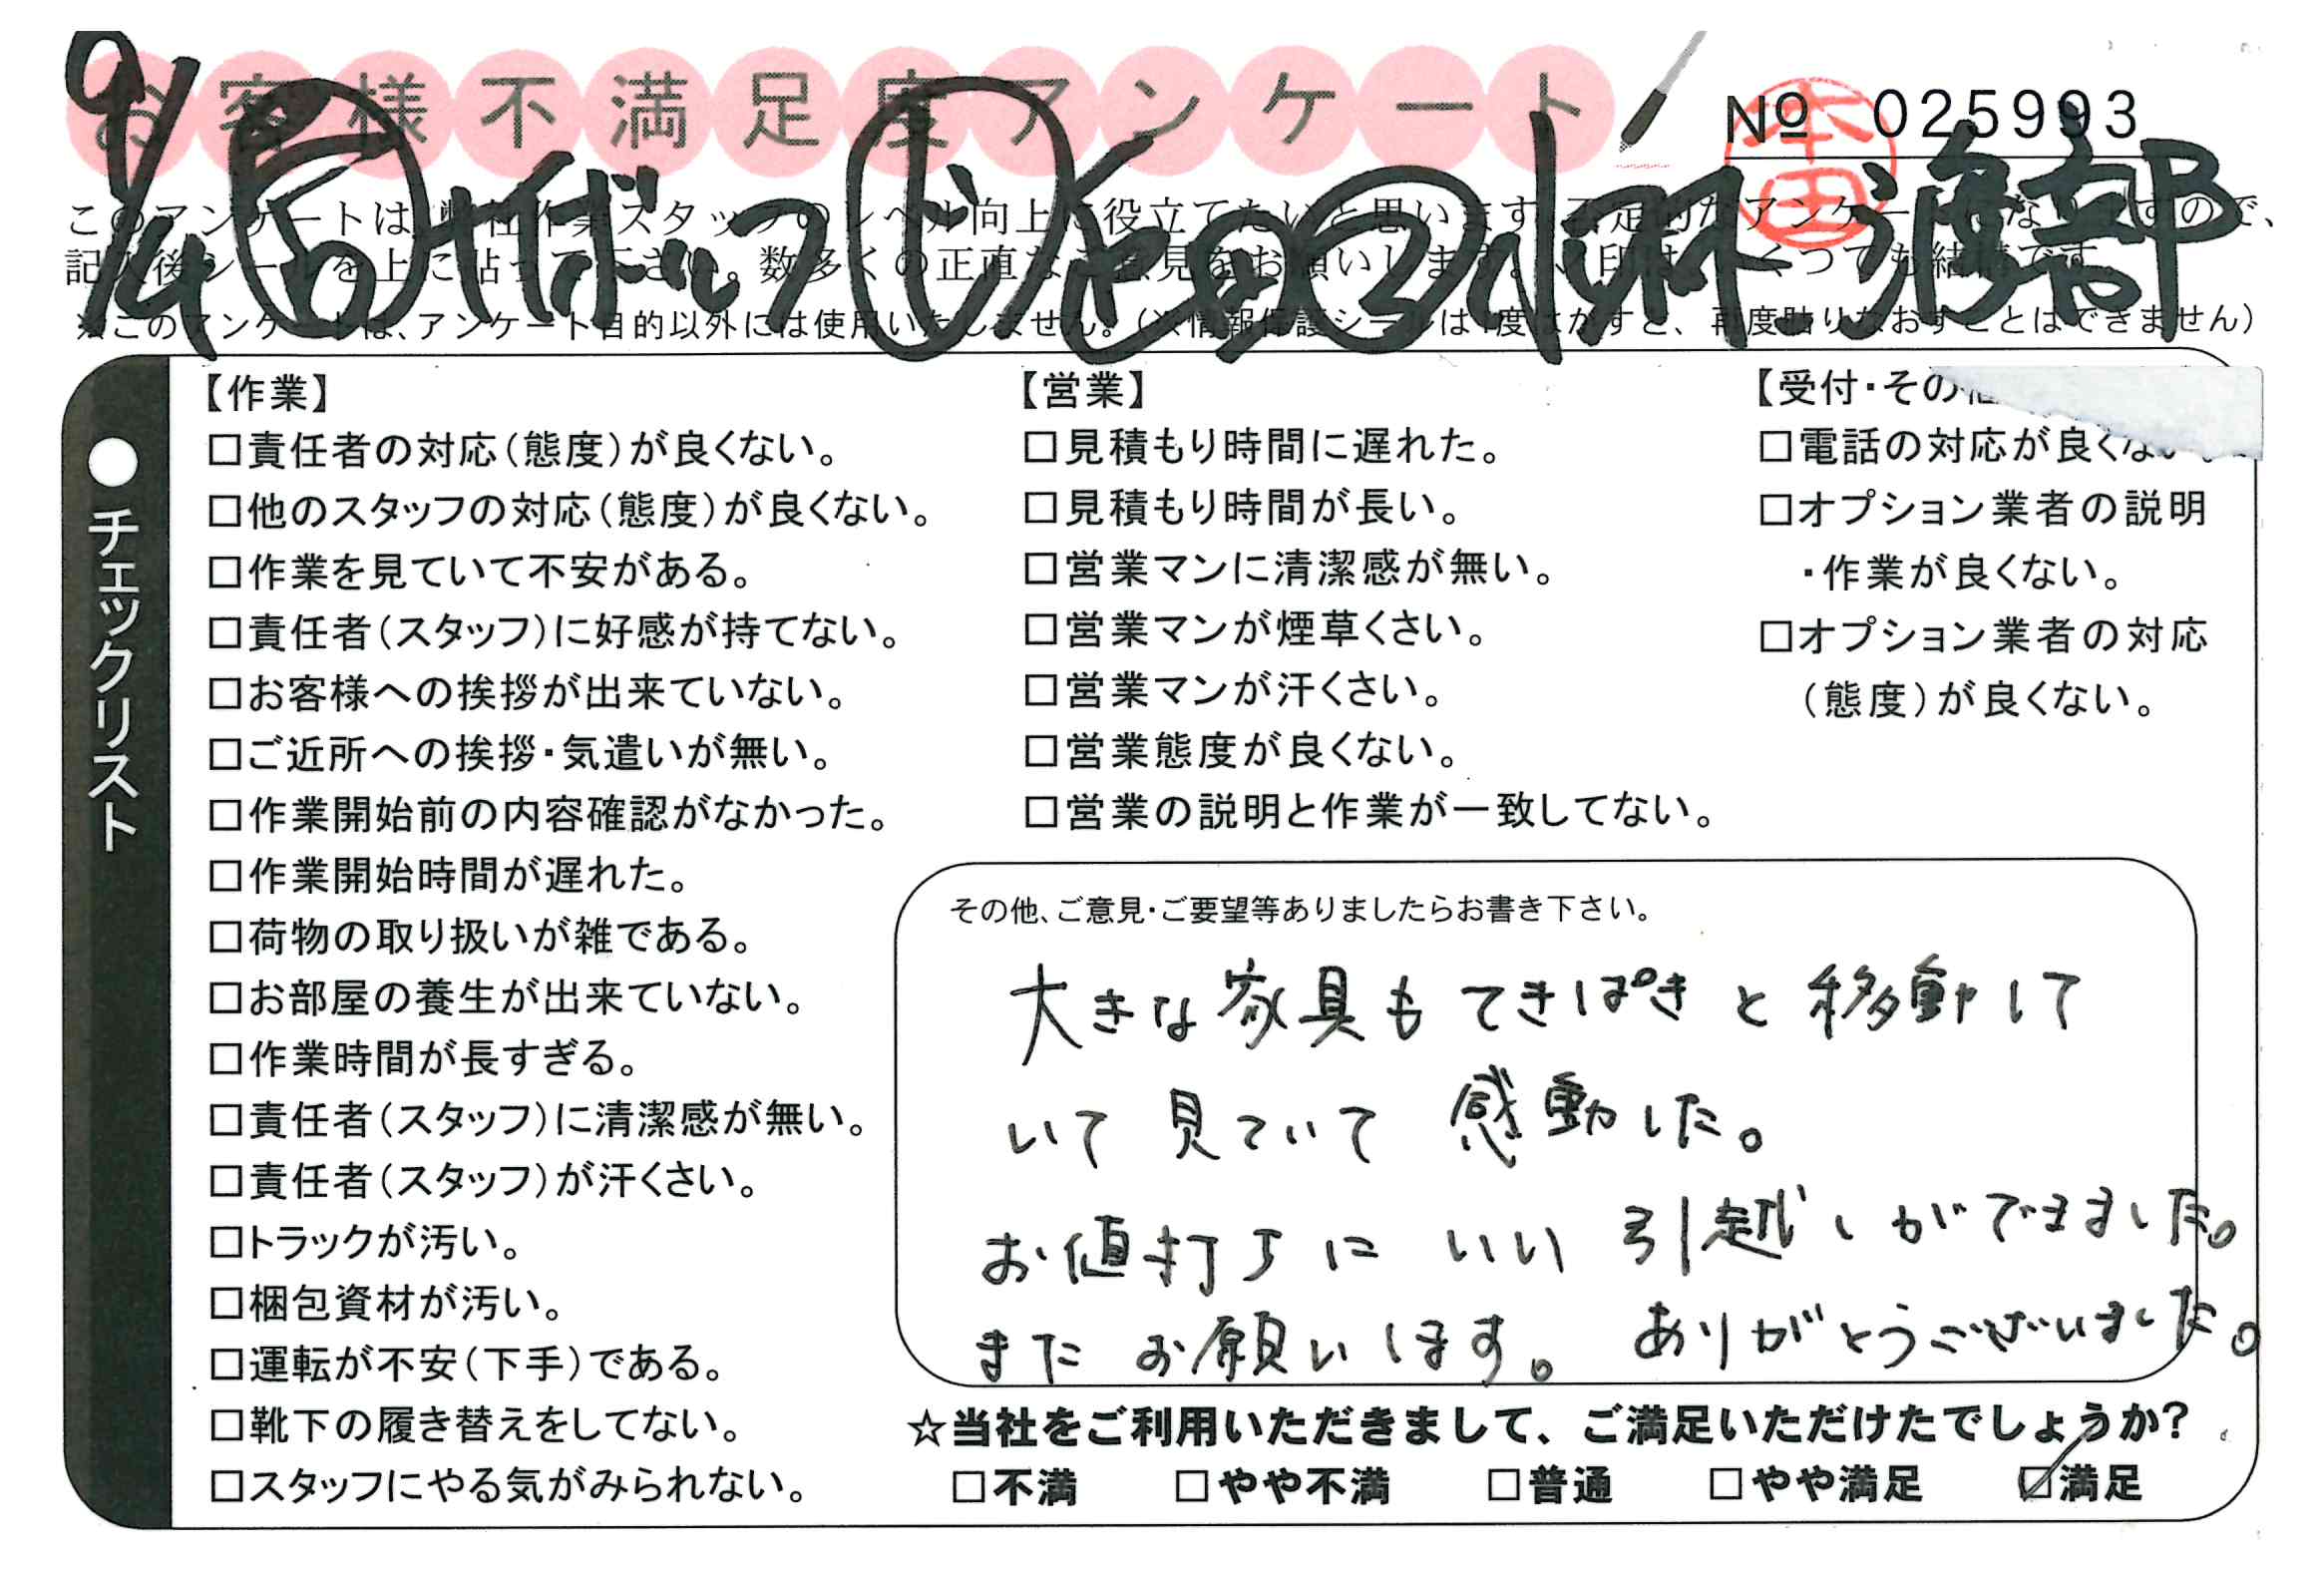 お客様不満足度アンケート
№ 025993
本田
9/4
小林 渡部B
このアンケートは、弊社作業スタッフのレベル向上に役立てたいと思います。否定的なアンケートになりますので、
記入後シールを上に貼って下さい。数多くの正直なご意見をお願いします。✓印はいくつでも結構です。
※このアンケートは、アンケート目的以外には使用いたしません。(※情報保護シールは1度はがすと、再度貼りなおすことはできません)
●チェックリスト
【作業】
□責任者の対応(態度)が良くない。
□他のスタッフの対応(態度)が良くない。
□作業を見ていて不安がある。
□責任者(スタッフ)に好感が持てない。
□お客様への挨拶が出来ていない。
□ご近所への挨拶・気遣いが無い。
□作業開始前の内容確認がなかった。
□作業開始時間が遅れた。
□荷物の取り扱いが雑である。
□お部屋の養生が出来ていない。
□作業時間が長すぎる。
□責任者(スタッフ)に清潔感が無い。
□責任者(スタッフ)が汗くさい。
□トラックが汚い。
□梱包資材が汚い。
□運転が不安(下手)である。
□靴下の履き替えをしてない。
□スタッフにやる気がみられない。
【営業】
□見積もり時間に遅れた。
□見積もり時間が長い。
□営業マンに清潔感が無い。
□営業マンが煙草くさい。
□営業マンが汗くさい。
□営業態度が良くない。
□営業の説明と作業が一致してない。
【受付・その他
□電話の対応が良くない。
□オプション業者の説明
・作業が良くない。
□オプション業者の対応
(態度)が良くない。
その他、ご意見・ご要望等ありましたらお書き下さい。
大きな家具もてきぱきと移動して
いて見ていて感動した。
お値打ちにいい引越しができました。
またお願いします。ありがとうございました。
☆当社をご利用いただきまして、ご満足いただけたでしょうか?
□不満 □やや不満 □普通 □やや満足 ☑満足